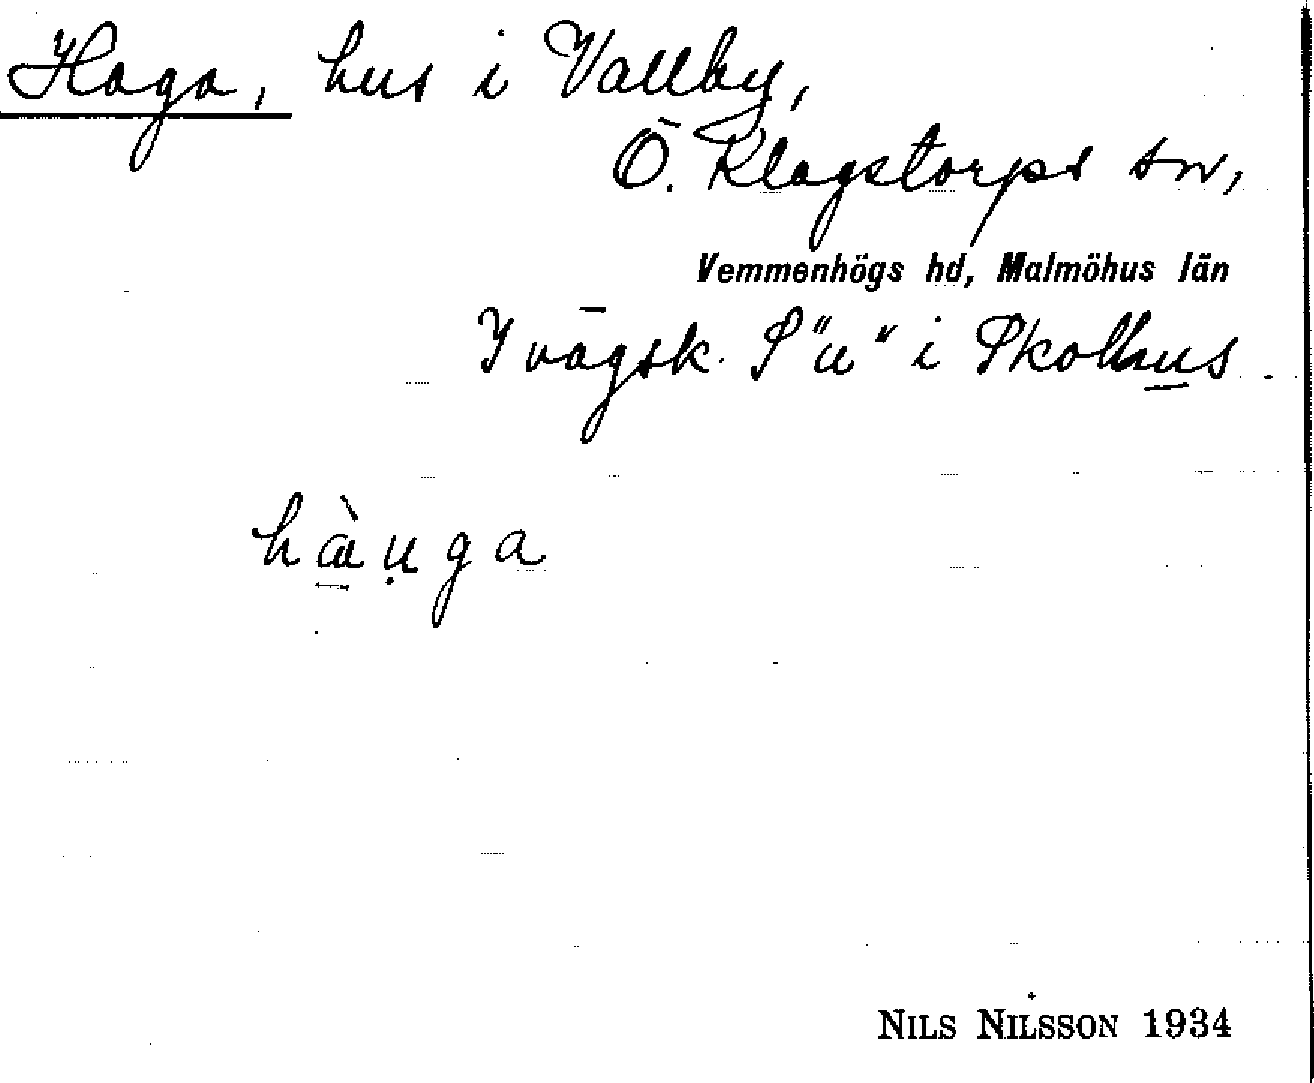 Haga, hus i Vallby,
Ö. Klagstorps sn,
Vemmenhögs hd, Malmöhus län
I vägsk. S "u" i Skolhus
hàụga
NILS NILSSON 1934